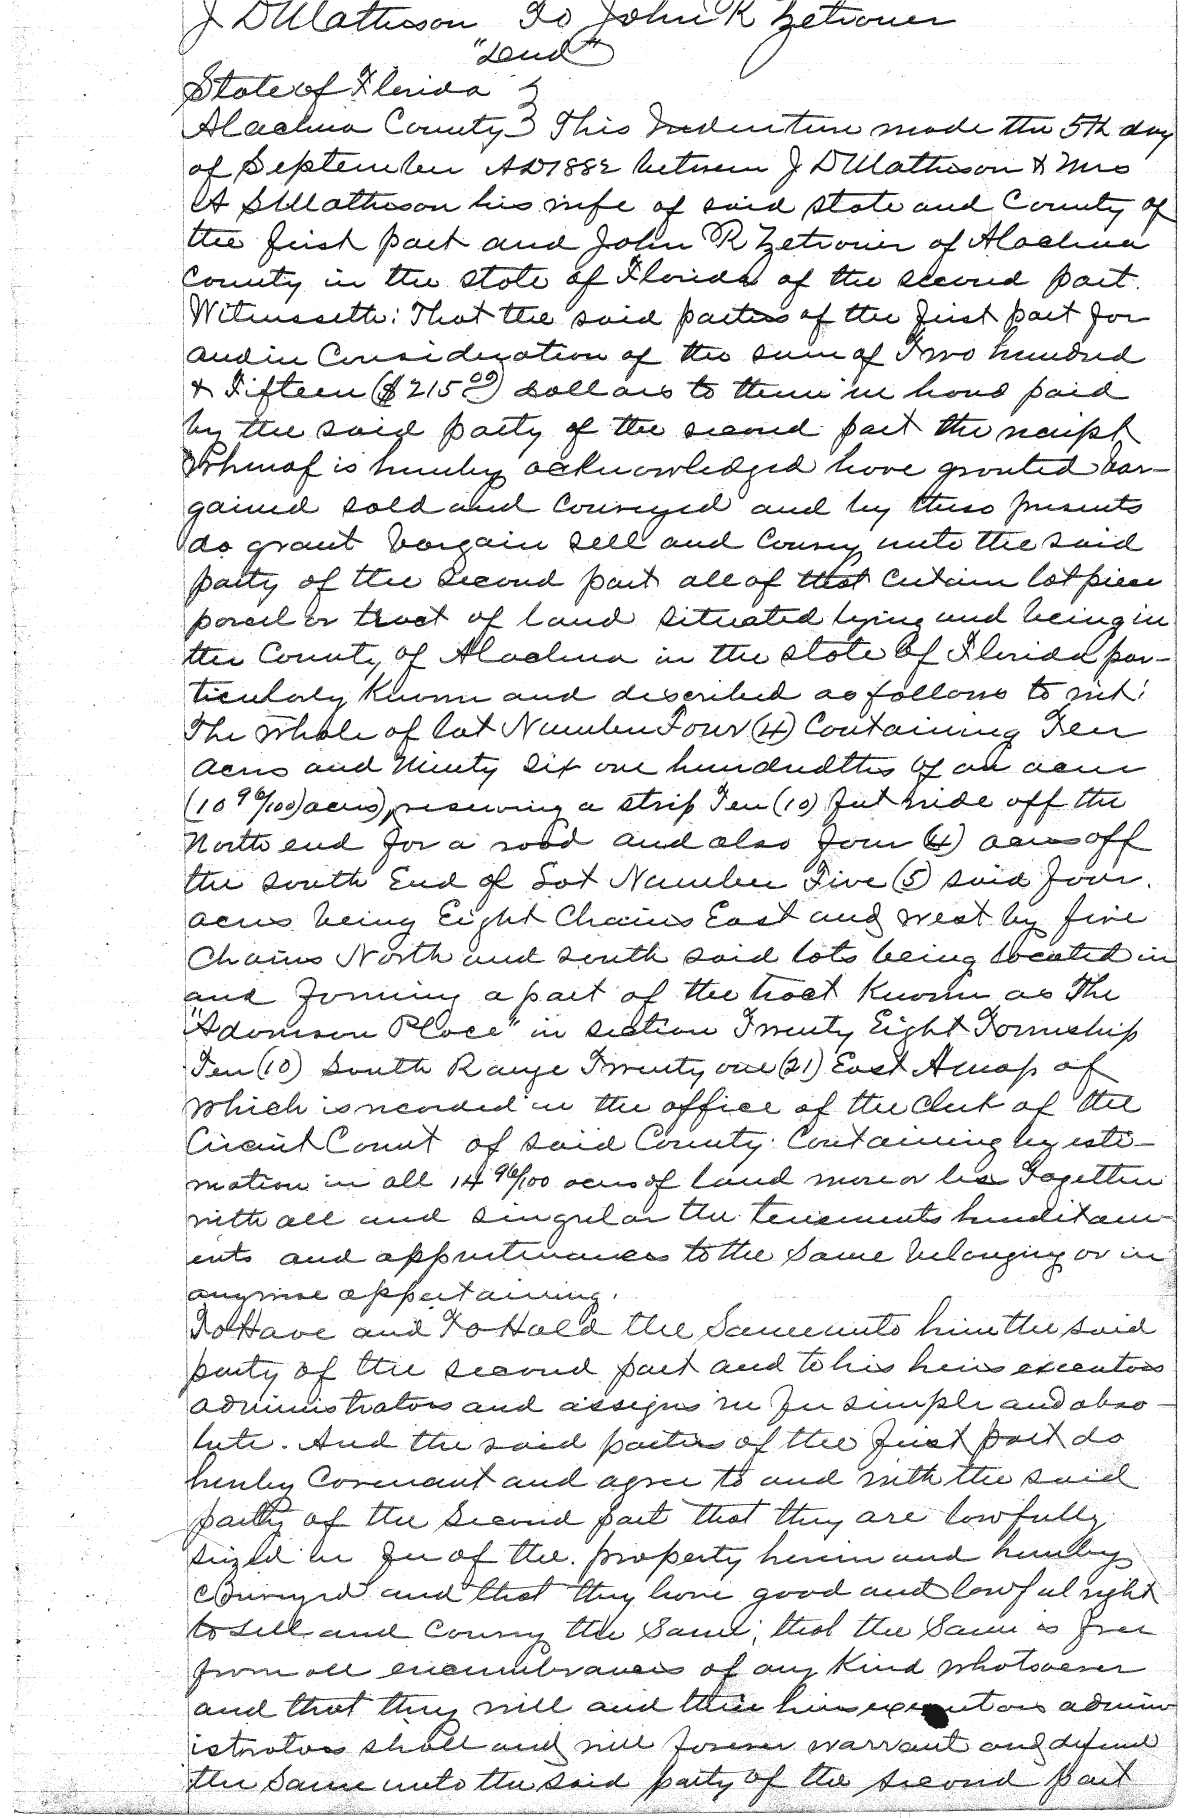 J D Matheson To John R Zetrouer
"Deed"
State of Florida }
Alachua County } This Indenture made the 5th day
of September AD 1882 between J D Matheson & Mrs
A S Matheson his wife of said state and County of
the first part and John R Zetrouer of Alachua
County in the state of Florida of the second part.
Witnesseth: That the said parties of the first part for
and in Consideration of the sum of Two hundred
& Fifteen ($215.00) dollars to them in hand paid
by the said party of the second part the receipt
Whereof is hereby acknowledged have granted bar-
gained sold and conveyed and by these presents
do grant bargain sell and convey unto the said
party of the second part all of that certain lot piece
parcel or tract of land situated lying and being in
the County of Alachua in the state of Florida par-
ticularly known and described as follows to wit:
The whole of lot Number Four (4) Containing Ten
acres and Ninety six one hundredths of an acre
(10 96/100) acres), reserving a strip Ten (10) feet wide off the
North end for a road and also four (4) acres off
the south End of Lot Number Five (5) said four
acres being Eight Chains East and west by five
Chains North and south said lots being located in
and forming a part of the tract known as The
"Adamson Place" in section Twenty Eight Township
Ten (10) South Range Twenty one (21) East A map of
which is recorded in the office of the Clerk of the
Circuit Court of said County. Containing by esti-
mation in all 14 96/100 acres of land more or less Together
with all and singular the tenements hereditam-
ents and appurtenances to the same belonging or in
anywise appertaining.
To Have and To Hold the Same unto him the said
party of the second part and to his heirs executors
administrators and assigns in fee simple and abso-
lute. And the said parties of the first part do
hereby Covenant and agree to and with the said
party of the Second part that they are lawfully
seized in fee of the property herein and hereby
conveyed and that they have good and lawful right
to sell and convey the same; that the same is free
from all encumbrances of any kind whatsoever
and that they will and their heirs executors admin-
istrators shall and will forever warrant and defend
the same unto the said party of the second part